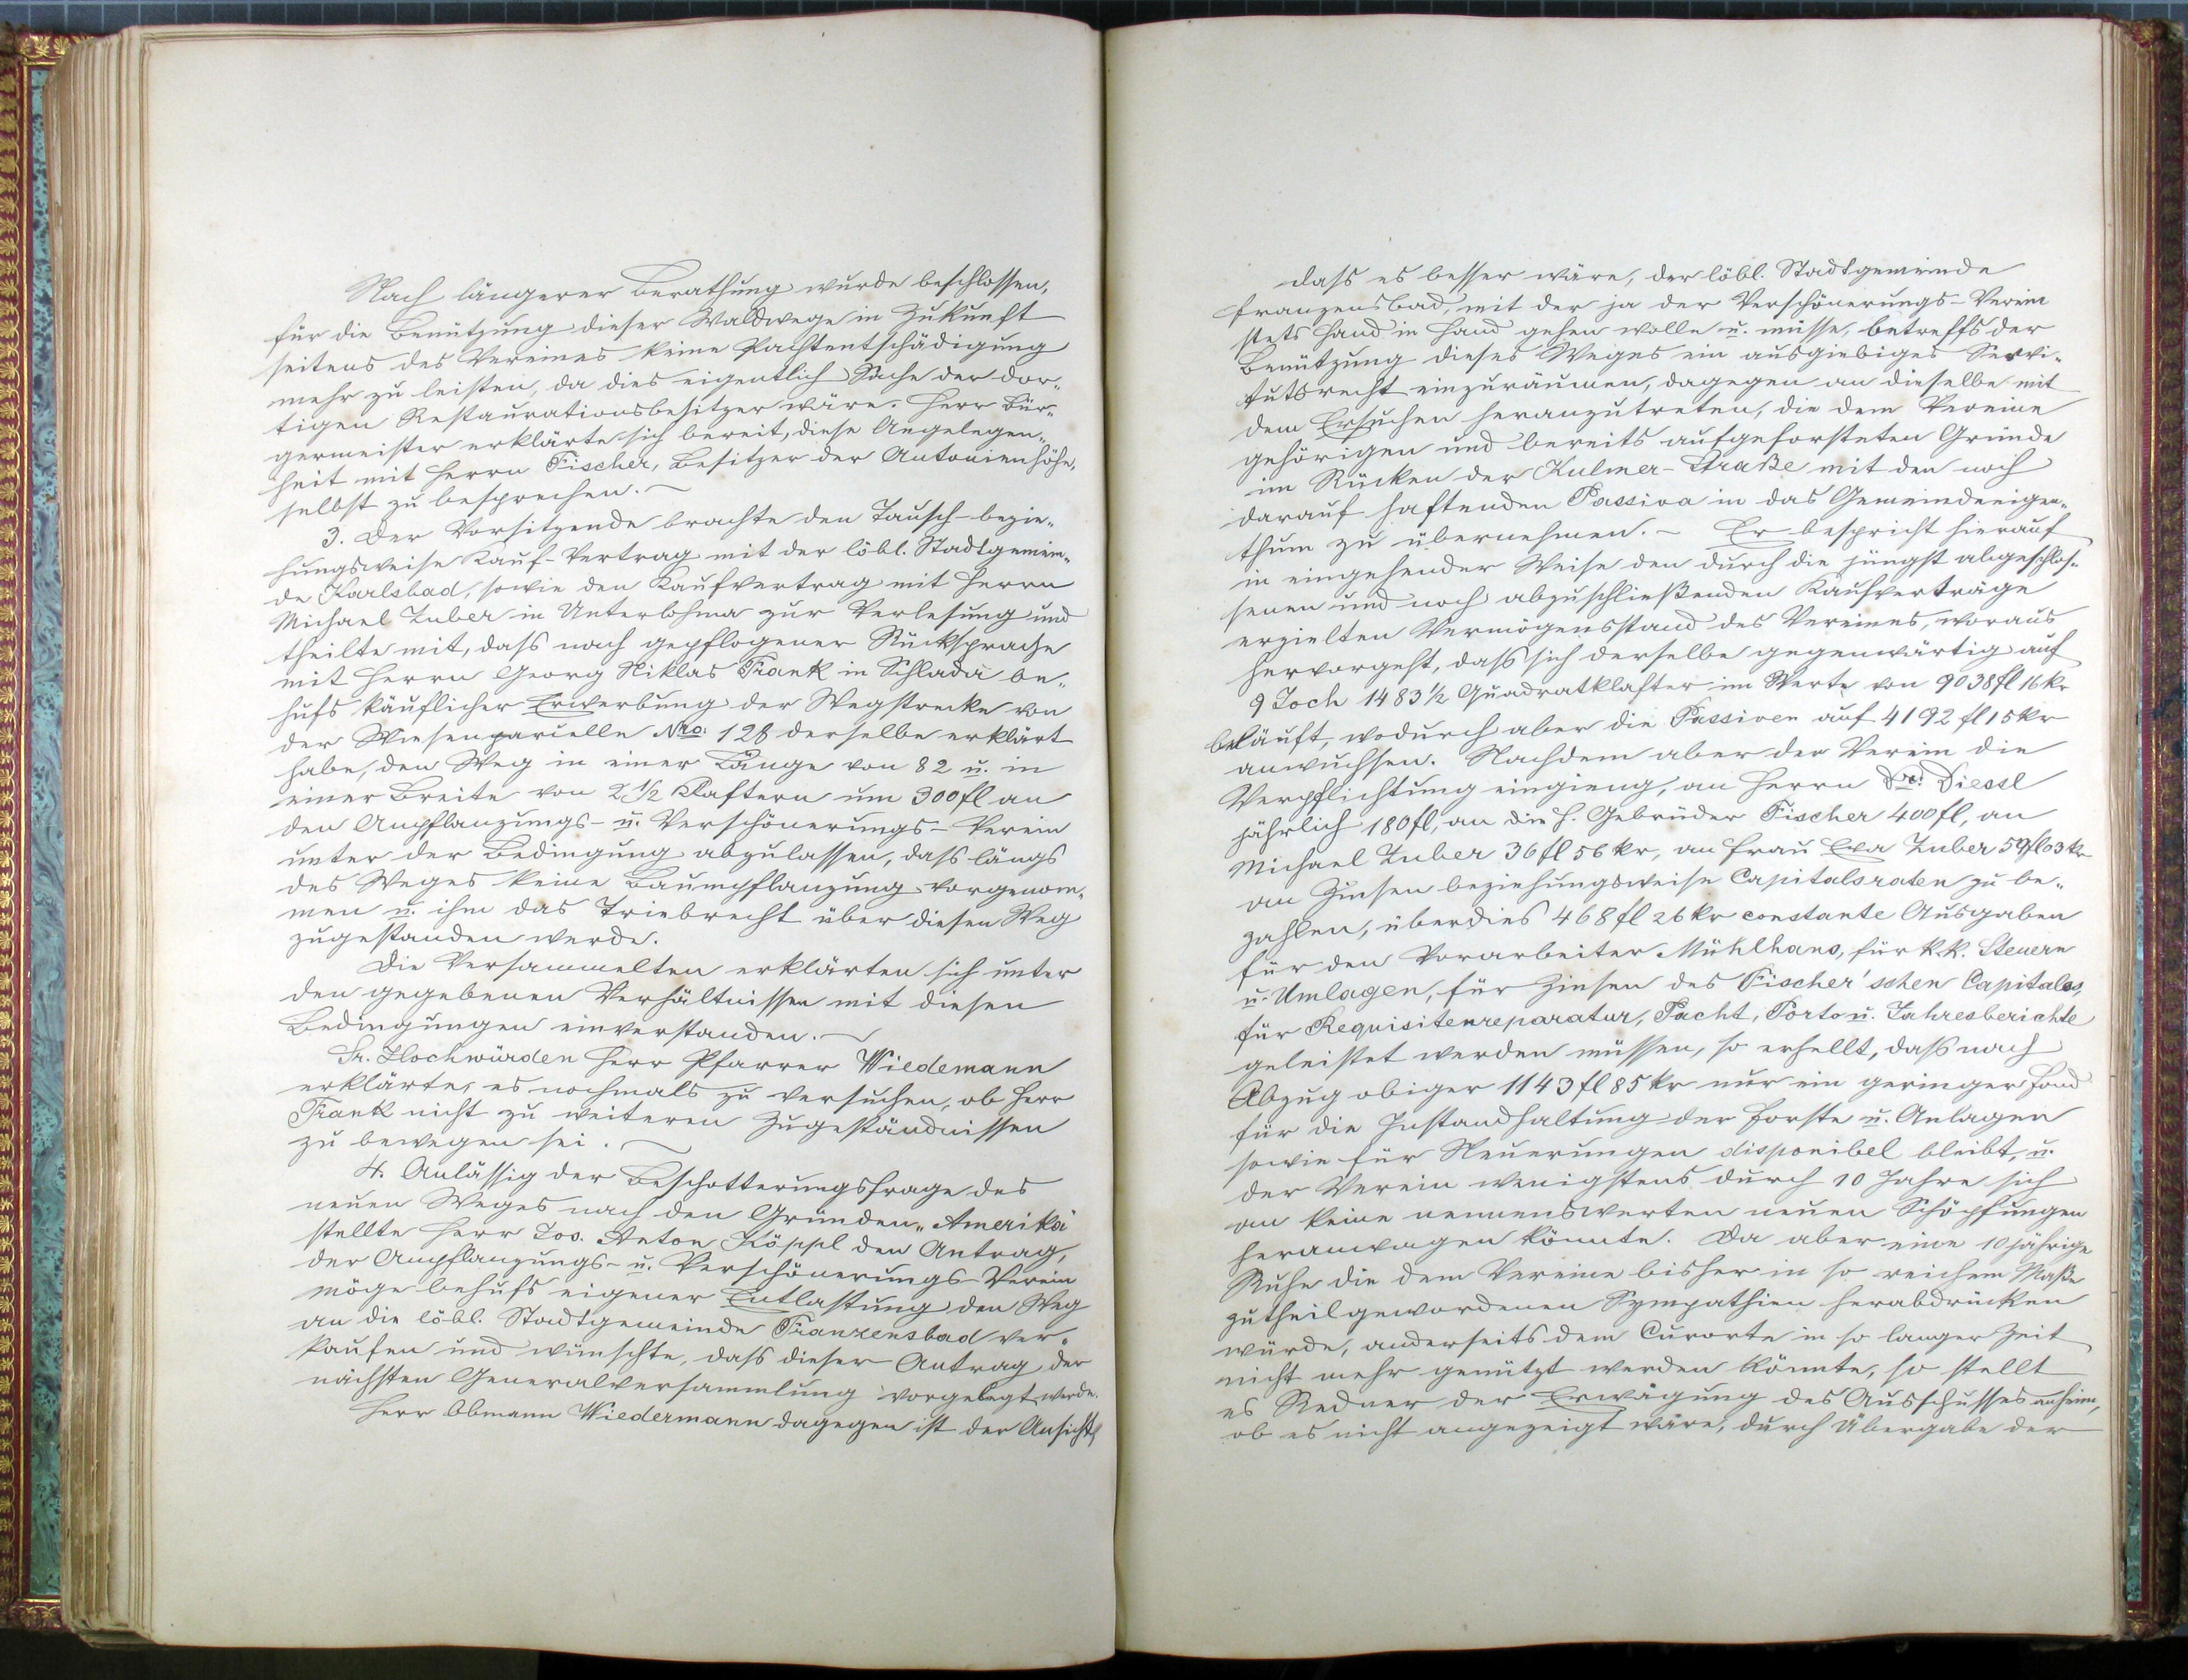 Nach längerer Berathung wurde beschlossen,
für die Benützung dieser Waldwege in Zukunft
seitens des Vereines keine Pachtentschädigung
mehr zu leisten, da dies eigentlich Sache der dor-
tigen Restaurationsbesitzer wäre. Herr Bür-
germeister erklärte sich bereit, diese Angelegen-
heit mit Herrn Fischer, Besitzer der Antonienhöhe,
selbst zu besprechen. –
3. Der Vorsitzende brachte den Tausch- bezie-
hungsweise Kauf-Vertrag mit der löbl. Stadtgemein-
de Karlsbad, sowie den Kaufvertrag mit Herrn
Michael Zuber in Unterlohma zur Verlesung und
theilte mit, dass nach gepflogener Rücksprache
mit Herrn Georg Niklas Frank in Schlada be-
hufs käuflicher Erwerbung der Wegstrecke von
der Wiesenparcelle Nro: 128 derselbe erklärt
habe, den Weg in einer Länge von 82 u. in
einer Breite von 2½ Klaftern um 300 fl an
den Anpflanzungs- u. Verschönerungs-Verein
unter der Bedingung abzulassen, dass längs
des Weges keine Baumpflanzung vorgenom-
men u. ihm das Triebrecht über diesen Weg
zugestanden werde.
Die Versammelten erklärten sich unter
den gegebenen Verhältnissen mit diesen
Bedingungen einverstanden. –
Sr. Hochwürden Herr Pfarrer Wiedemann
erklärte, es nochmals zu versuchen, ob Herr
Frank nicht zu weiteren Zugeständnissen
zu bewegen sei. –
4. Anlässig der Beschotterungsfrage des
neuen Weges nach den Gründen „Amerika"
stellte Herr Jos. Anton Köppl den Antrag,
der Anpflanzungs- u. Verschönerungs-Verein
möge behufs eigener Entlastung den Weg
an die löbl. Stadtgemeinde Franzensbad ver-
kaufen und wünschte, dass dieser Antrag der
nächsten Generalversammlung vorgelegt werde.
Herr Obmann Wiedermann dagegen ist der Ansicht,
dass es besser wäre, der löbl. Stadtgemeinde
Franzensbad, mit der ja der Verschönerungs-Verein
stets Hand in Hand gehen wolle u. müsse, betreffs der
Benützung dieses Weges ein ausgiebiges Servi-
tutsrecht einzuräumen, dagegen an dieselbe mit
dem Ersuchen heranzutreten, die dem Vereine
gehörigen und bereits aufgeforsteten Gründe
im Rücken der Kulmer-Straße mit den noch
darauf haftenden Passiva in das Gemeindeeigen-
thum zu übernehmen. – Er bespricht hierauf
in eingehender Weise den durch die jüngst abgeschlos-
senen und noch abzuschließenden Kaufverträge
erzielten Vermögensstand des Vereines, woraus
hervorgeht, dass sich derselbe gegenwärtig auf
9 Joch 1483½ Quadratklafter im Werte von 9038 fl 16 kr
beläuft, wodurch aber die Passiven auf 4192 fl 15 kr
anwuchsen. Nachdem aber der Verein die
Verpflichtung eingieng, an Herrn Dr. Diessl
jährlich 180 fl, an die H. Gebrüder Fischer 400 fl, an
Michael Zuber 36 fl 56 kr, an Frau Eva Zuber 59 fl 03 kr
an Zinsen beziehungsweise Capitalsraten zu be-
zahlen, überdies 468 fl 26 kr constante Ausgaben
für den Vorarbeiter Mühlhans, für k.k. Steuern
u. Umlagen, für Zinsen des Fischer'schen Capitales,
für Requisitenreparatur, Pacht, Porto u. Jahresberichte
geleistet werden müssen, so erhellt, dass nach
Abzug obiger 1143 fl 85 kr nur ein geringer Fond
für die Instandhaltung der Forste u. Anlagen
sowie für Neuerungen disponibel bleibt, u.
der Verein wenigstens durch 10 Jahre sich
an keine nennenswerten neuen Schöpfungen
heranwagen könnte. Da aber eine 10 jährige
Ruhe die dem Vereine bisher in so reichem Maße
zutheilgewordenen Sympathien herabdrücken
würde, anderseits dem Curorte in so langer Zeit
nicht mehr genützt werden könnte, so stellt
es Redner der Erwägung des Ausschusses anheim,
ob es nicht angezeigt wäre, durch Übergabe der